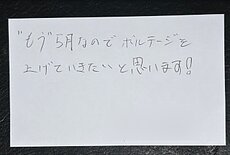 "もう"5月なので ボルテージを
上げていきたいと思います!!